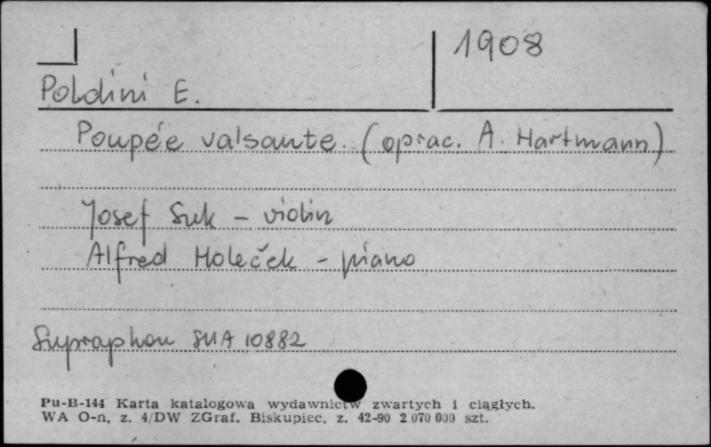 1908
Poldini E.
Poupée valsante. (oprac. A. Hartmann)
Josef Suk - violin
Alfred Holeček - piano
Supraphon SUA 10882
Pu-B-144 Karta katalogowa wydawnictw zwartych i ciągłych.
WA O-n, z. 4/DW ZGraf. Biskupiec, z. 42-90 2 070 000 szt.